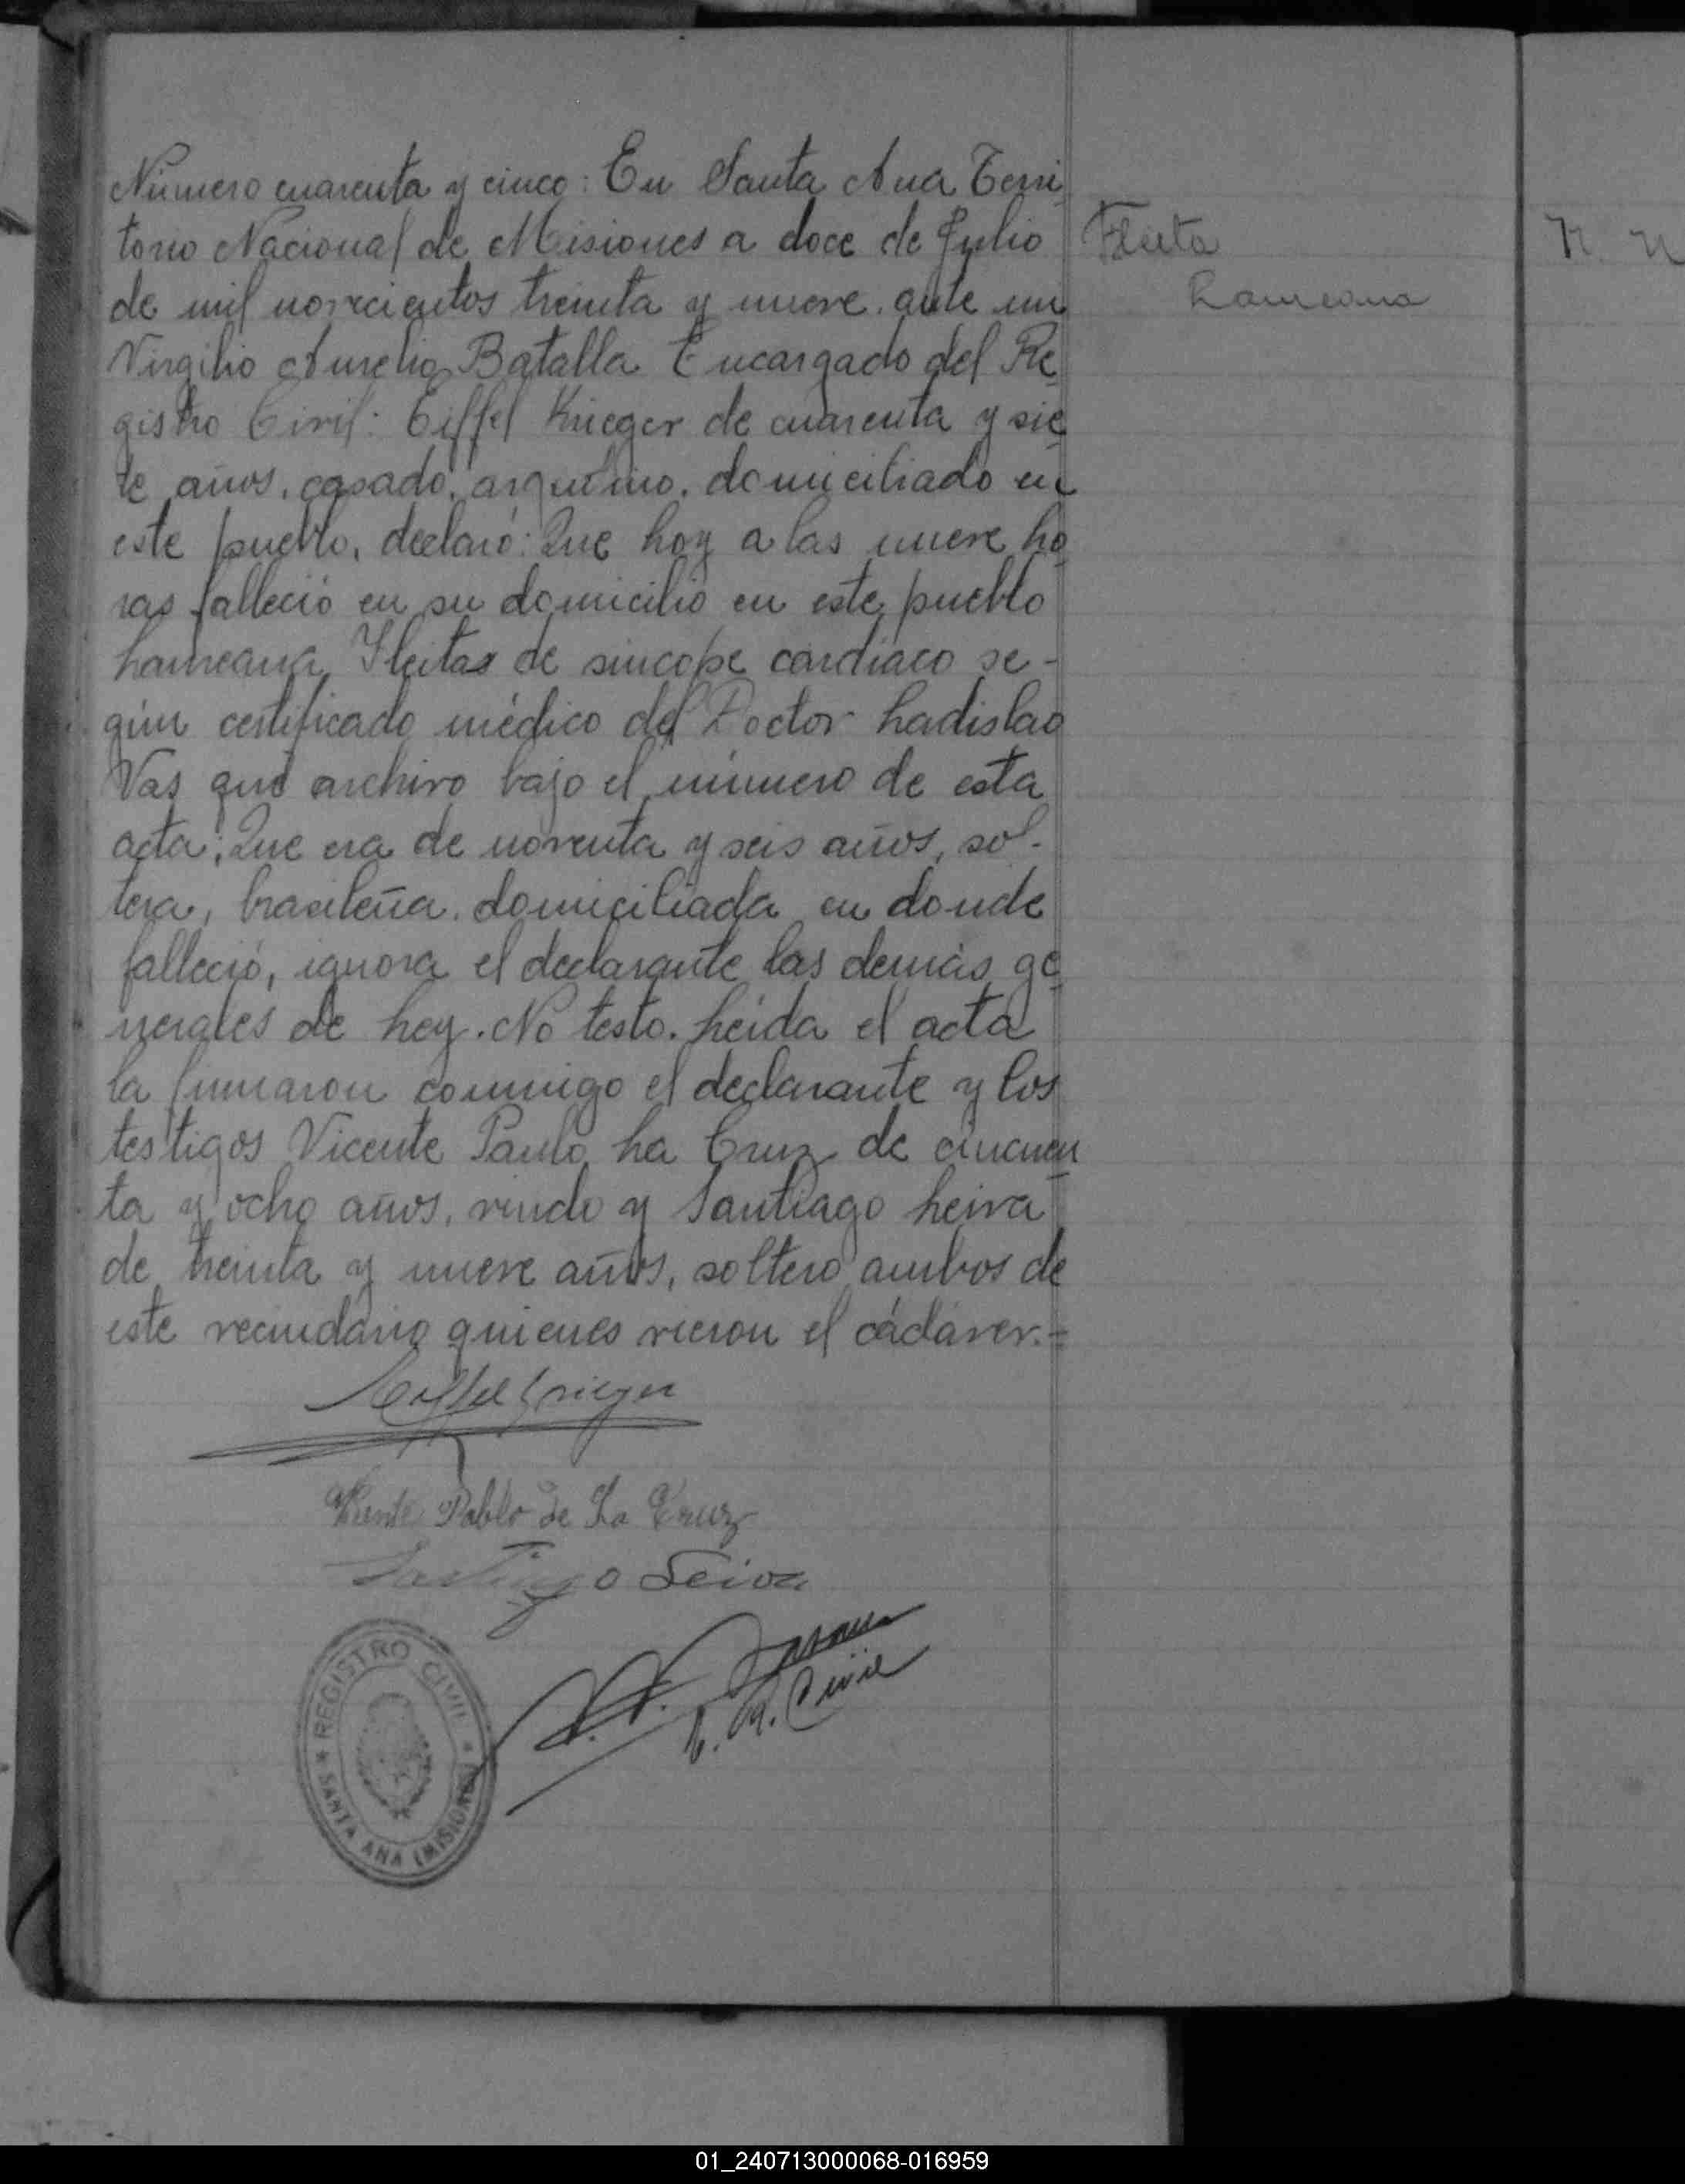 Número cuarenta y cinco: En Santa Ana Terri
torio Nacional de Misiones a doce de Julio
de mil novecientos treinta y nueve. ante mi
Virgilio Aurelio Batalla Encargado del Re
gistro Civil: Eiffel Krieger de cuarenta y sie
te años, casado, argentino, domiciliado en
este pueblo, declaró: Que hoy a las nueve ho
ras falleció en su domicilio en este pueblo
Laureana Fleitas de sincope cardíaco se-
gún certificado médico del Doctor Ladislao
Vas que archivo bajo el número de esta
acta; Que era de noventa y seis años, sol-
tera, brasileña. domiciliada en donde
falleció, ignora el declarante las demás ge
nerales de Ley. No testo. Leída el acta
la firmaron conmigo el declarante y los
testigos Vicente Paulo La Cruz de cincuen
ta y ocho años, viudo y Santiago Leiva
de treinta y nueve años, soltero ambos de
este vecindario quienes vieron el cádáver.-
Eiffel Krieger
Vicente Pablo de La Cruz
Santiago Leiva
E. R. Civil
REGISTRO CIVIL
SANTA ANA (MISIONES)
Fleita
Laureana
N. N
01_240713000068-016959